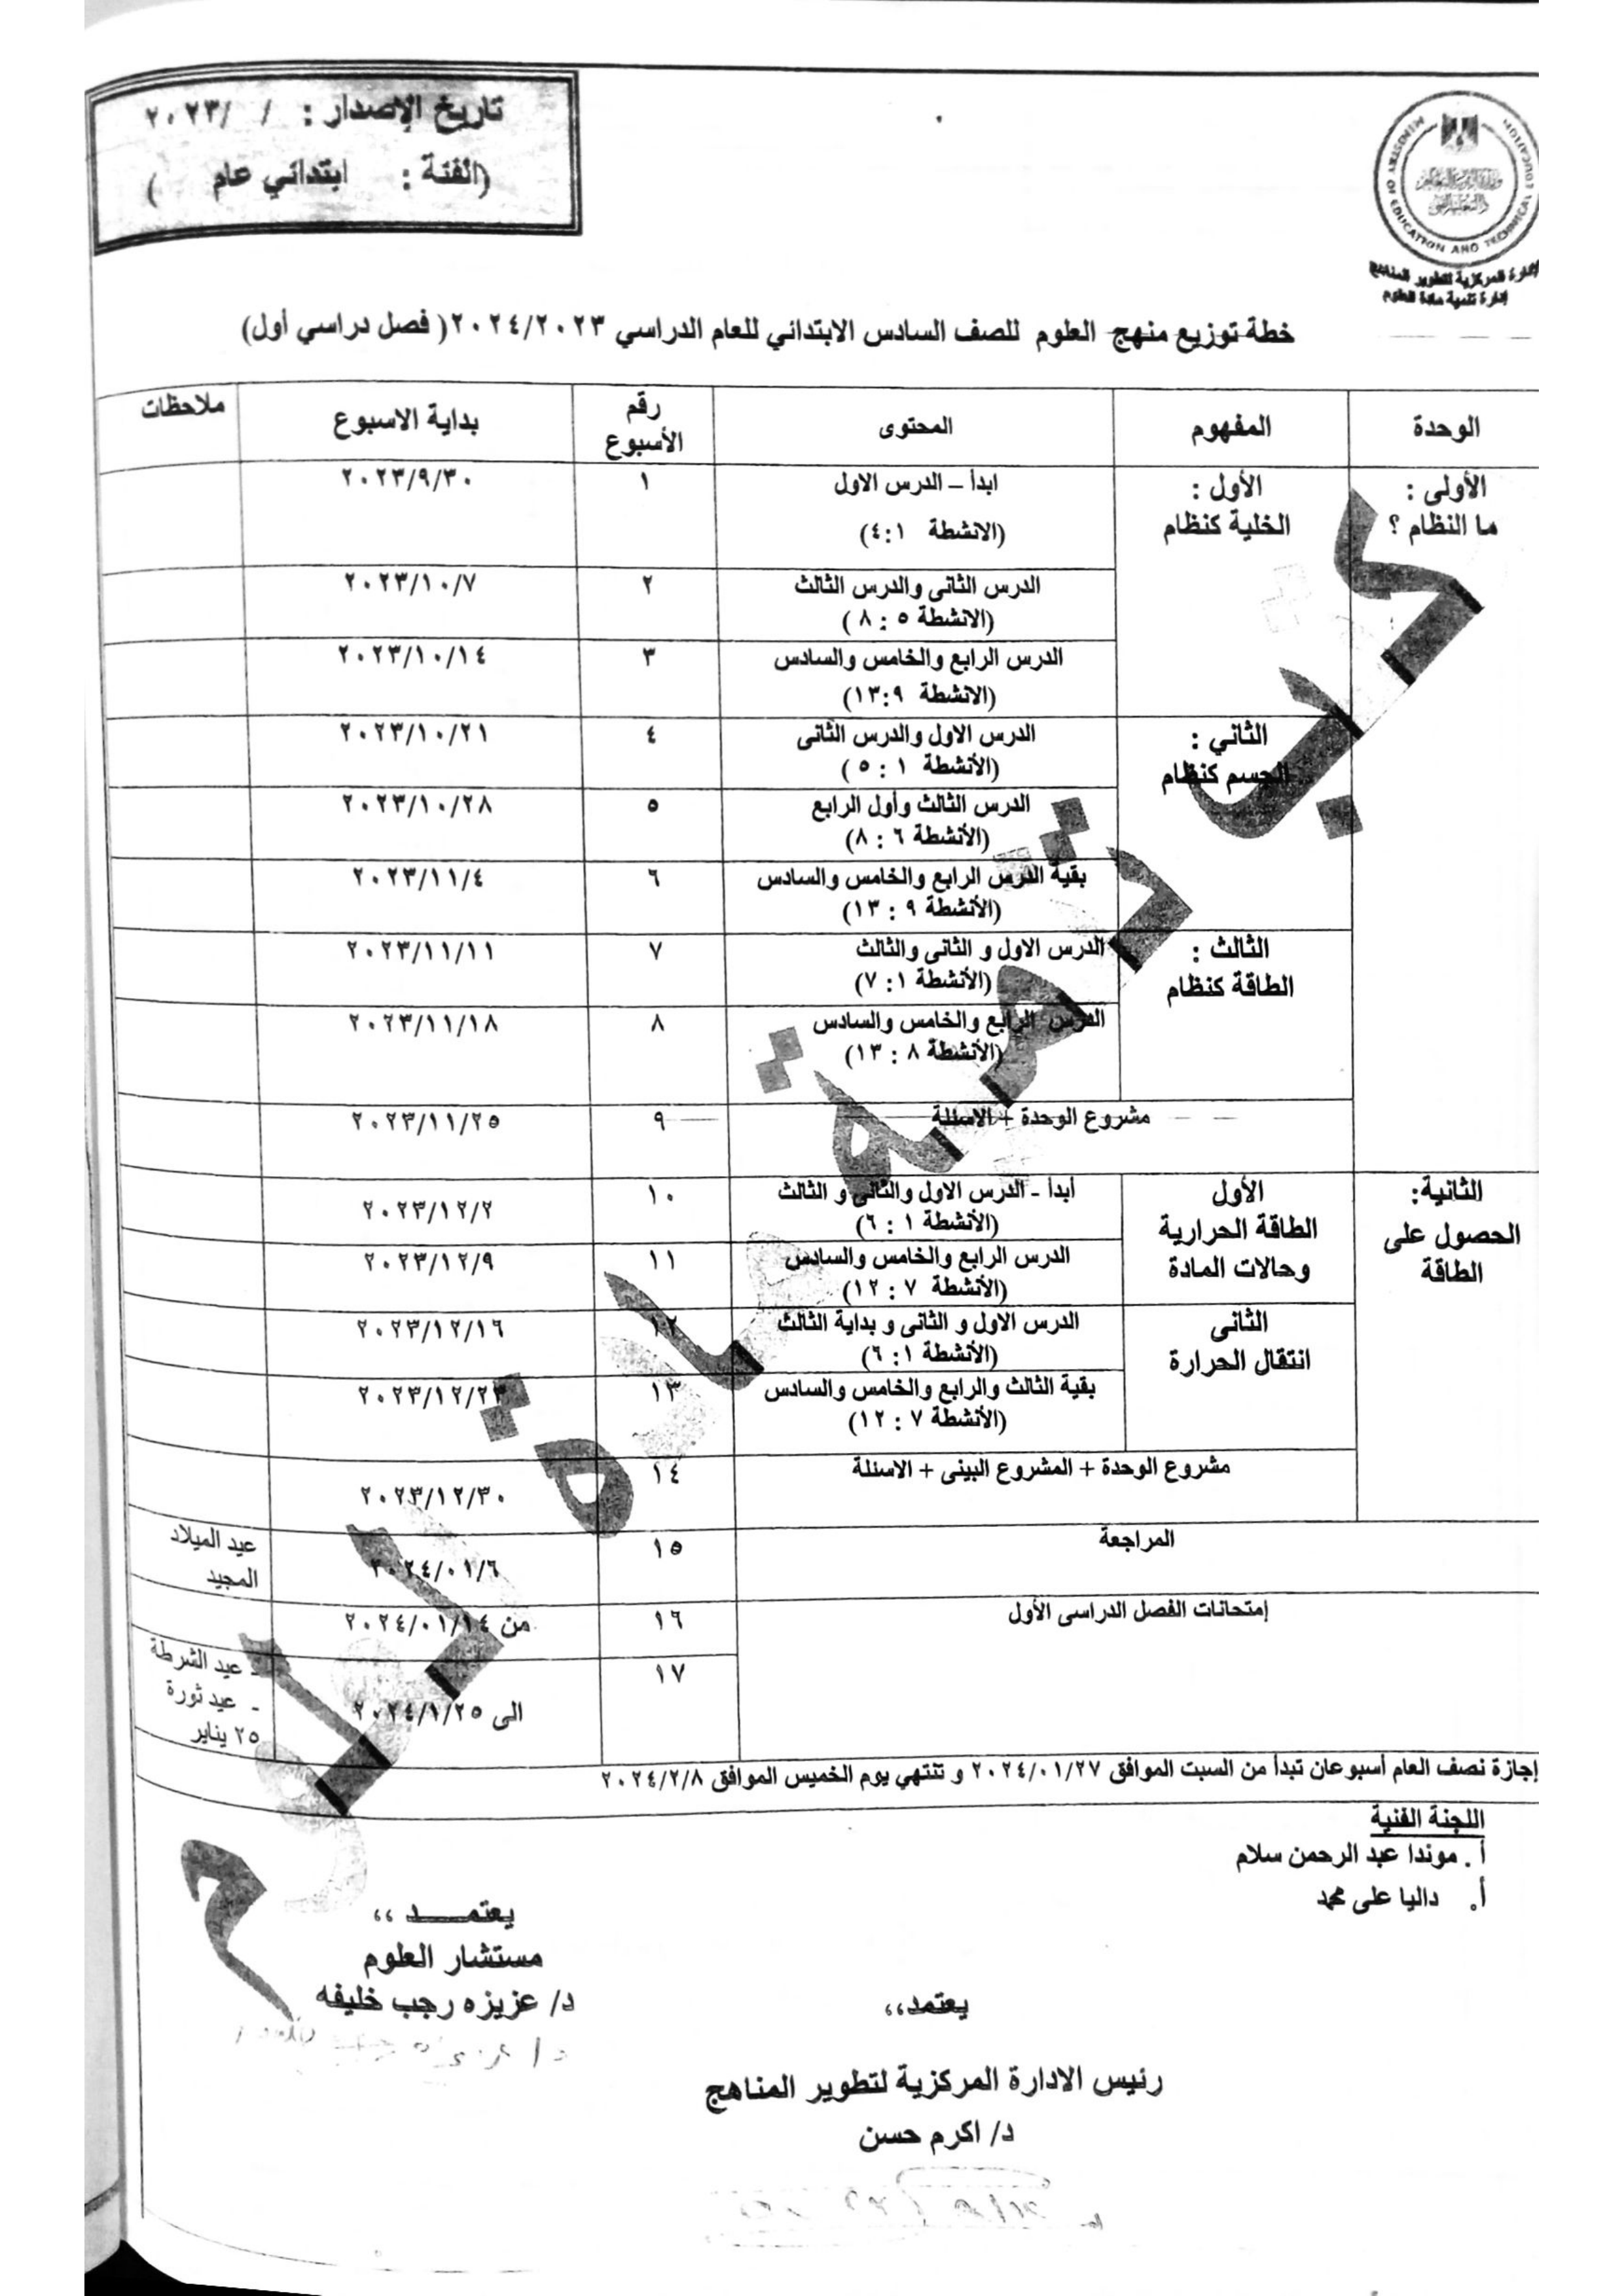 تاريخ الإصدار : / /٢٠٢٣
(الفئة : ابتدائي عام )
MINISTRY OF EDUCATION AND TECHNICAL EDUCATION
وزارة التربية والتعليم
والتعليم الفني
الإدارة المركزية لتطوير المناهج
إدارة تنمية مادة العلوم
خطة توزيع منهج العلوم للصف السادس الابتدائي للعام الدراسي ٢٠٢٤/٢٠٢٣( فصل دراسي أول)
الوحدة المفهوم المحتوى رقم الأسبوع بداية الاسبوع ملاحظات
الأولى :
ما النظام ؟
الأول :
الخلية كنظام
ابدأ – الدرس الاول
(الانشطة ٤:١)
١
٢٠٢٣/٩/٣٠
الدرس الثانى والدرس الثالث
(الانشطة ٥ : ٨ )
٢
٢٠٢٣/١٠/٧
الدرس الرابع والخامس والسادس
(الانشطة ١٣:٩)
٣
٢٠٢٣/١٠/١٤
الثاني :
الجسم كنظام
الدرس الاول والدرس الثانى
(الأنشطة ١ : ٥ )
٤
٢٠٢٣/١٠/٢١
الدرس الثالث وأول الرابع
(الأنشطة ٦ : ٨)
٥
٢٠٢٣/١٠/٢٨
بقية الدرس الرابع والخامس والسادس
(الأنشطة ٩ : ١٣)
٦
٢٠٢٣/١١/٤
الثالث :
الطاقة كنظام
الدرس الاول و الثانى والثالث
(الأنشطة ١: ٧)
٧
٢٠٢٣/١١/١١
الدرس الرابع والخامس والسادس
(الأنشطة ٨ : ١٣)
٨
٢٠٢٣/١١/١٨
مشروع الوحدة + الاسئلة
٩
٢٠٢٣/١١/٢٥
الثانية:
الحصول على
الطاقة
الأول
الطاقة الحرارية
وحالات المادة
أبدأ - الدرس الاول والثانى و الثالث
(الأنشطة ١ : ٦)
١٠
٢٠٢٣/١٢/٢
الدرس الرابع والخامس والسادس
(الأنشطة ٧ : ١٢)
١١
٢٠٢٣/١٢/٩
الثانى
انتقال الحرارة
الدرس الاول و الثانى و بداية الثالث
(الأنشطة ١: ٦)
١٢
٢٠٢٣/١٢/١٦
بقية الثالث والرابع والخامس والسادس
(الأنشطة ٧ : ١٢)
١٣
٢٠٢٣/١٢/٢٣
مشروع الوحدة + المشروع البينى + الاسئلة
١٤
٢٠٢٣/١٢/٣٠
المراجعة
١٥
٢٠٢٤/٠١/٦
عيد الميلاد
المجيد
إمتحانات الفصل الدراسى الأول
١٦
من ٢٠٢٤/٠١/١٤
١٧
الى ٢٠٢٤/١/٢٥
- عيد الشرطة
- عيد ثورة
٢٥ يناير
إجازة نصف العام أسبوعان تبدأ من السبت الموافق ٢٠٢٤/٠١/٢٧ و تنتهي يوم الخميس الموافق ٢٠٢٤/٢/٨
اللجنة الفنية
أ . موندا عبد الرحمن سلام
أ. داليا على محمد
يعتمـــــد ،،
مستشار العلوم
د/ عزيزه رجب خليفه
يعتمد،،
رئيس الادارة المركزية لتطوير المناهج
د/ اكرم حسن